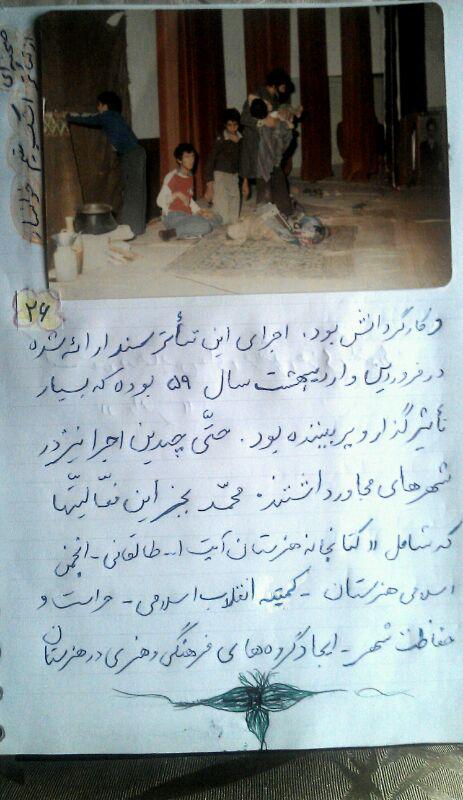 صحنه‌ای
از تئاتر اشک یتیم
۲۶
و کارگردانش بود. اجرای این تئأتر سند ارائه شده
در فروردین و اردیبهشت سال ۵۹ بوده که بسیار
تأثیرگذار و پر بیننده بود. حتّی چندین اجرا نیز در
شهرهای مجاور داشتند. محمّد بجز این فعّالیّتها
که شامل « کتابخانه هنرستان آیت ا... طالقانی - انجمن
اسلامی هنرستان - کمیته انقلاب اسلامی - حراست و
حفاظت شهر - ایجاد گروه‌های فرهنگی و هنری در هنرستان